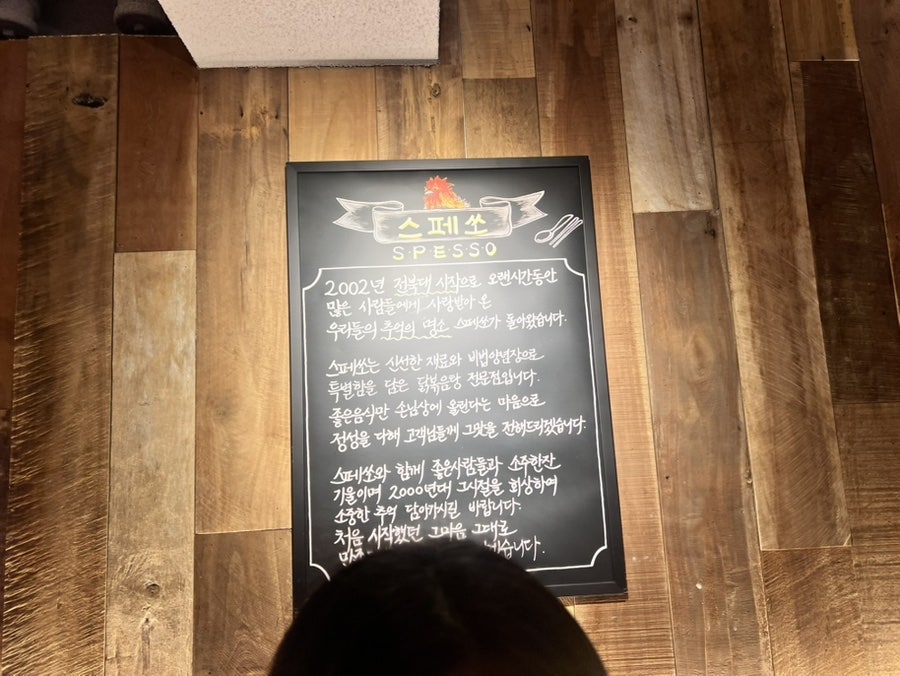 스페쏘
SPESSO
2002년 전북대 시작으로 오랜시간동안
많은 사람들에게 사랑받아 온
우리들의 추억의 명소 스페쏘가 돌아왔습니다.
스페쏘는 신선한 재료와 비법양념장으로
특별함을 담은 닭볶음탕 전문점입니다.
좋은음식만 손님상에 올린다는 마음으로
정성을 다해 고객님들께 그맛을 전해드리겠습니다.
스페쏘와 함께 좋은사람들과 소주한잔
기울이며 2000년대 그시절을 회상하며
소중한 추억 담아가시길 바랍니다.
처음 시작했던 그마음 그대로